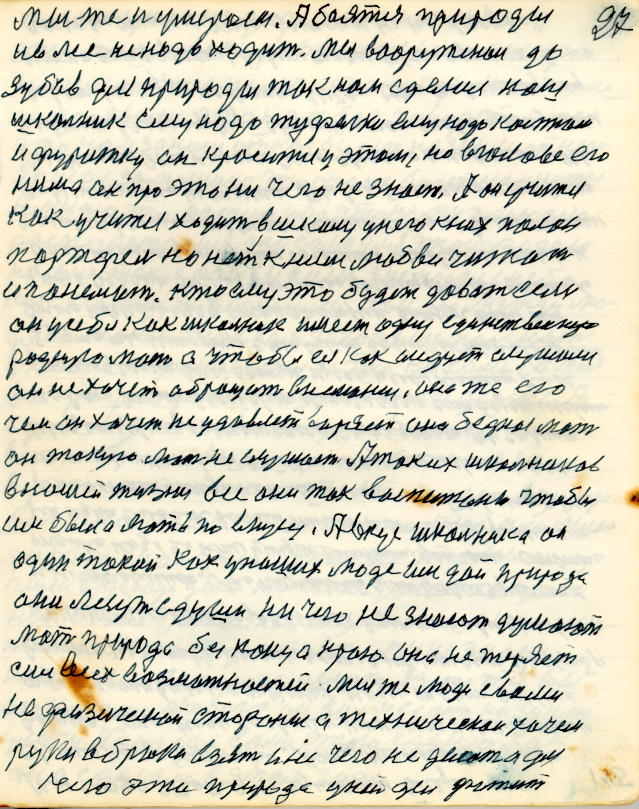 27
мы же и умираем. А боятся природы
и в лес не надо ходит. мы вооружены до
зубов для природы так нам сделал наш
школник ему надо туфельки ему надо костюм
и фуражку он красится у этом, но в голове его
нима он про это ни чего не знает. А он учится
как учится ходит в школу у него кних полон
портфел но нет к ним любви читат
и понемат. кто ему это будет доват если
он у себя как школник имеет одну единственную
родную мат а чтобы ея как следует слушали
он не хочет обращат внемание, она же его
чем он хочет не удавлетваряет она бедная мат
он такую мат не слушает А таких школников
в нашей жизни все они так воспетаны чтобы
им была мать по вкусу. А вкус школника он
один такой как у наших людей им дай природа
они лезут в души ни чего не знают думают
мат природа без конца и краю она не теряет
сил своих возможностей. мы же люди своей
не физической стороной а технической хочем
руки в брюки взят и не чего не делат а для
чего эта природа у ней для